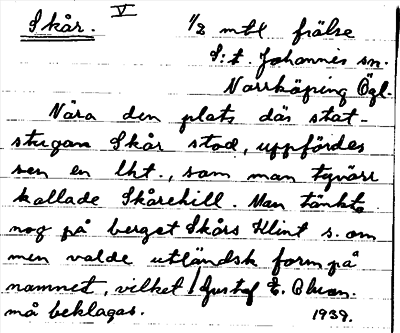 Skår. V 1/2 mtl frälse
S:t. Johannes sn.
Norrköping Ögl.
Nära den plats där stat-
stugan Skår stod, uppfördes
sen en lht., som man tyvärr
kallade Skårehill. Man tänkte
nog på berget Skårs Klint s. om
men valde utländsk form på
namnet, vilket / Gustaf E. Olson.
må beklagas. 1939.